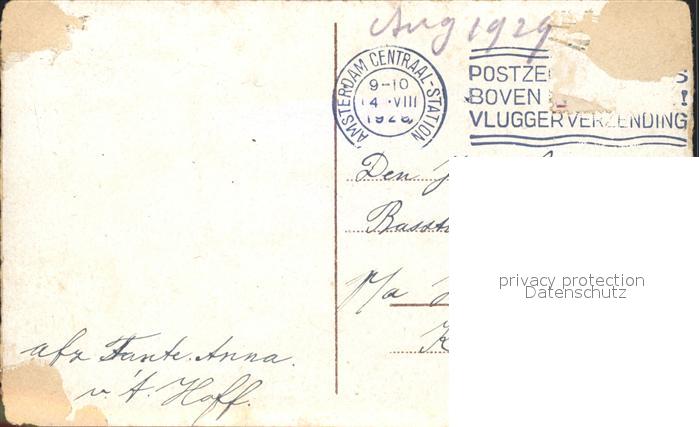 Aug 1929
AMSTERDAM CENTRAAL-STATION
9-10
14 VIII
1928
POSTZE S
BOVEN !
VLUGGER VERZENDING
Den
p/a
privacy protection
Datenschutz
afz Tante Anna.
v. 't. Hoff.